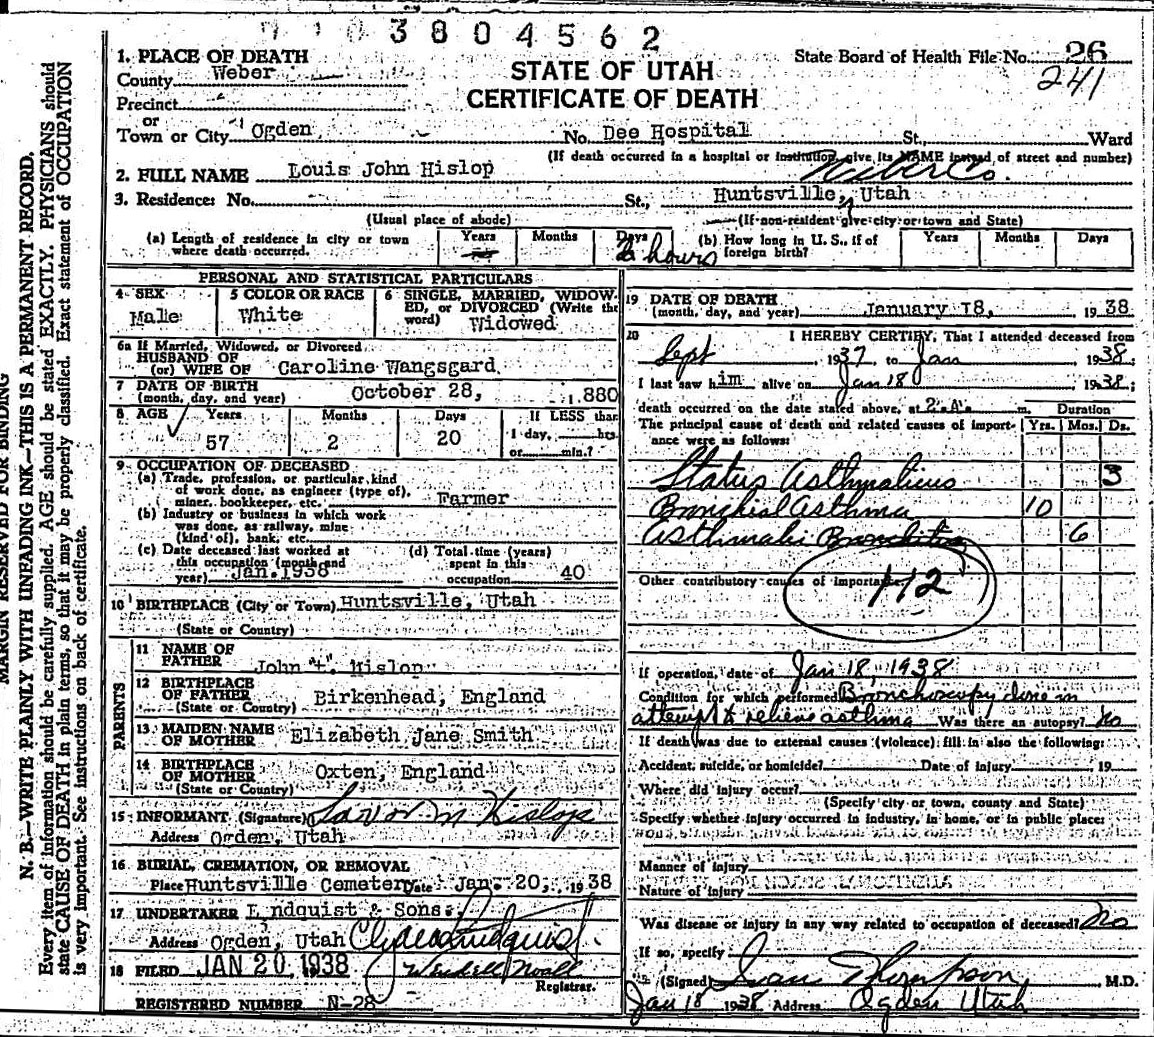 3804562
1. PLACE OF DEATH
County Weber
Precinct
or
Town or City Ogden No. Dee Hospital St. Ward
(If death occurred in a hospital or institution, give its NAME instead of street and number)
STATE OF UTAH
CERTIFICATE OF DEATH
State Board of Health File No. 26
241
2. FULL NAME Louis John Hislop
3. Residence: No. St., Huntsville, Utah
(Usual place of abode) (If non-resident give city or town and State)
(a) Length of residence in city or town where death occurred. Years Months Days 2 hours
(b) How long in U. S., if of foreign birth? Years Months Days
PERSONAL AND STATISTICAL PARTICULARS
4 SEX Male
5 COLOR OR RACE White
6 SINGLE, MARRIED, WIDOWED, or DIVORCED (Write the word) Widowed
6a If Married, Widowed, or Divorced
HUSBAND OF
(or) WIFE OF Caroline Wangsgard
7 DATE OF BIRTH
(month, day, and year) October 28, 1880
8 AGE Years Months Days If LESS than
57 2 20 1 day, hrs.
or min.?
9 OCCUPATION OF DECEASED
(a) Trade, profession, or particular kind
of work done, as engineer (type of),
miner, bookkeeper, etc. Farmer
(b) Industry or business in which work
was done, as railway, mine
(kind of), bank, etc.
(c) Date deceased last worked at
this occupation (month and
year) Jan. 1938
(d) Total time (years)
spent in this
occupation 40
10 BIRTHPLACE (City or Town) Huntsville, Utah
(State or Country)
PARENTS
11 NAME OF
FATHER John "t" Hislop
12 BIRTHPLACE
OF FATHER Birkenhead, England
(State or Country)
13 MAIDEN NAME
OF MOTHER Elizabeth Jane Smith
14 BIRTHPLACE
OF MOTHER Oxten, England
(State or Country)
15 INFORMANT (Signature) M Hislop
Address Ogden, Utah
16 BURIAL, CREMATION, OR REMOVAL
Place Huntsville Cemetery Date Jan. 20, 1938
17 UNDERTAKER Lindquist & Sons.
Address Ogden, Utah Clyde Lindquist
18 FILED JAN 20 1938 Wendell Noall
Registrar.
REGISTERED NUMBER N-28
19 DATE OF DEATH
(month, day, and year) January 18, 1938
20 I HEREBY CERTIFY, That I attended deceased from
Sept 1937 to Jan 1938
I last saw him alive on Jan 18 1938;
death occurred on the date stated above, at 2 A. m. Duration
The principal cause of death and related causes of importance were as follows: Yrs. Mos. Ds.
Status Asthmaticus 3
Bronchial Asthma 10
Asthmatic Bronchitis 6
Other contributory causes of importance:
112
If operation, date of Jan 18, 1938
Condition for which performed Bronchoscopy done in
attempt to relieve asthma Was there an autopsy? No
If death was due to external causes (violence) fill in also the following:
Accident, suicide, or homicide? Date of injury 19
Where did injury occur?
(Specify city or town, county and State)
Specify whether injury occurred in industry, in home, or in public place:
Manner of injury
Nature of injury
Was disease or injury in any way related to occupation of deceased? No
If so, specify
(Signed) Ivan Thompson, M.D.
Jan 18 1938 Address Ogden Utah
MARGIN RESERVED FOR BINDING
N. B.—WRITE PLAINLY WITH UNFADING INK—THIS IS A PERMANENT RECORD.
Every item of information should be carefully supplied. AGE should be stated EXACTLY. PHYSICIANS should
state CAUSE OF DEATH in plain terms, so that it may be properly classified. Exact statement of OCCUPATION
is very important. See instructions on back of certificate.